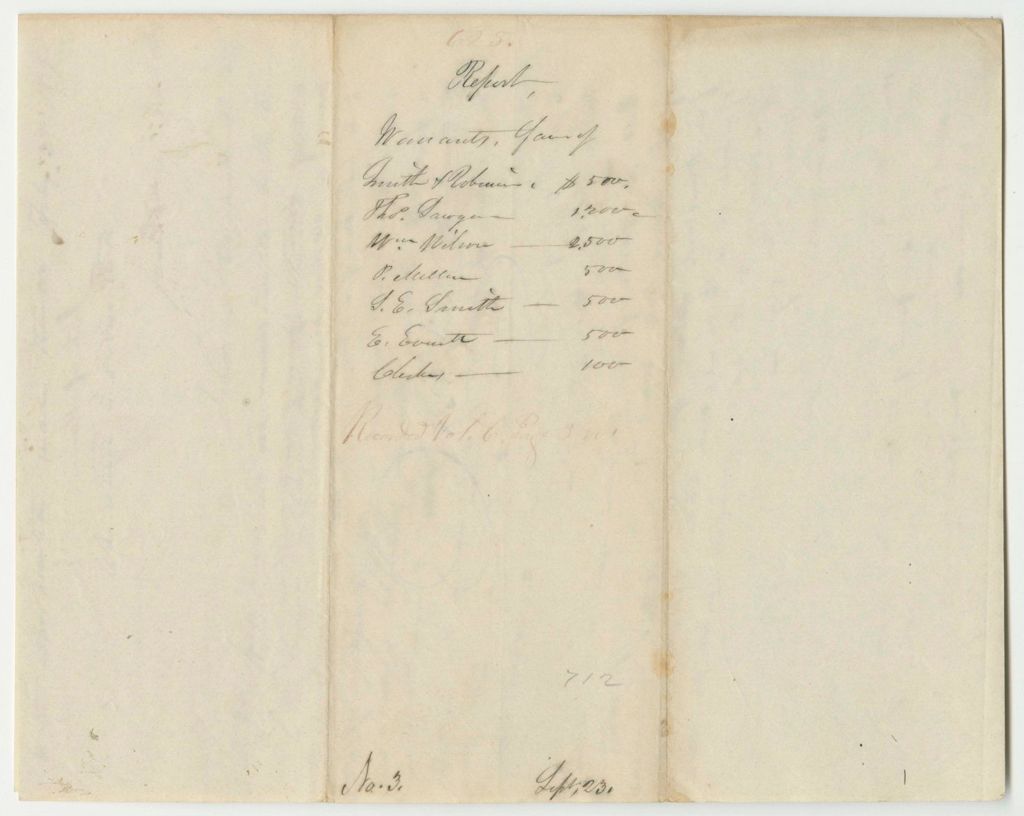 623.
Report,
Warrants, favor of
Smith & Robinson, $ 500.
Thos. Sawyer 1200
Wm. Wilson — 2,500
P. Mellen 500
S. E. Smith — 500
E. Everett — 500
Clerks, — 100
Recorded Vol. 6. Page
712
No. 3. Sept. 23.